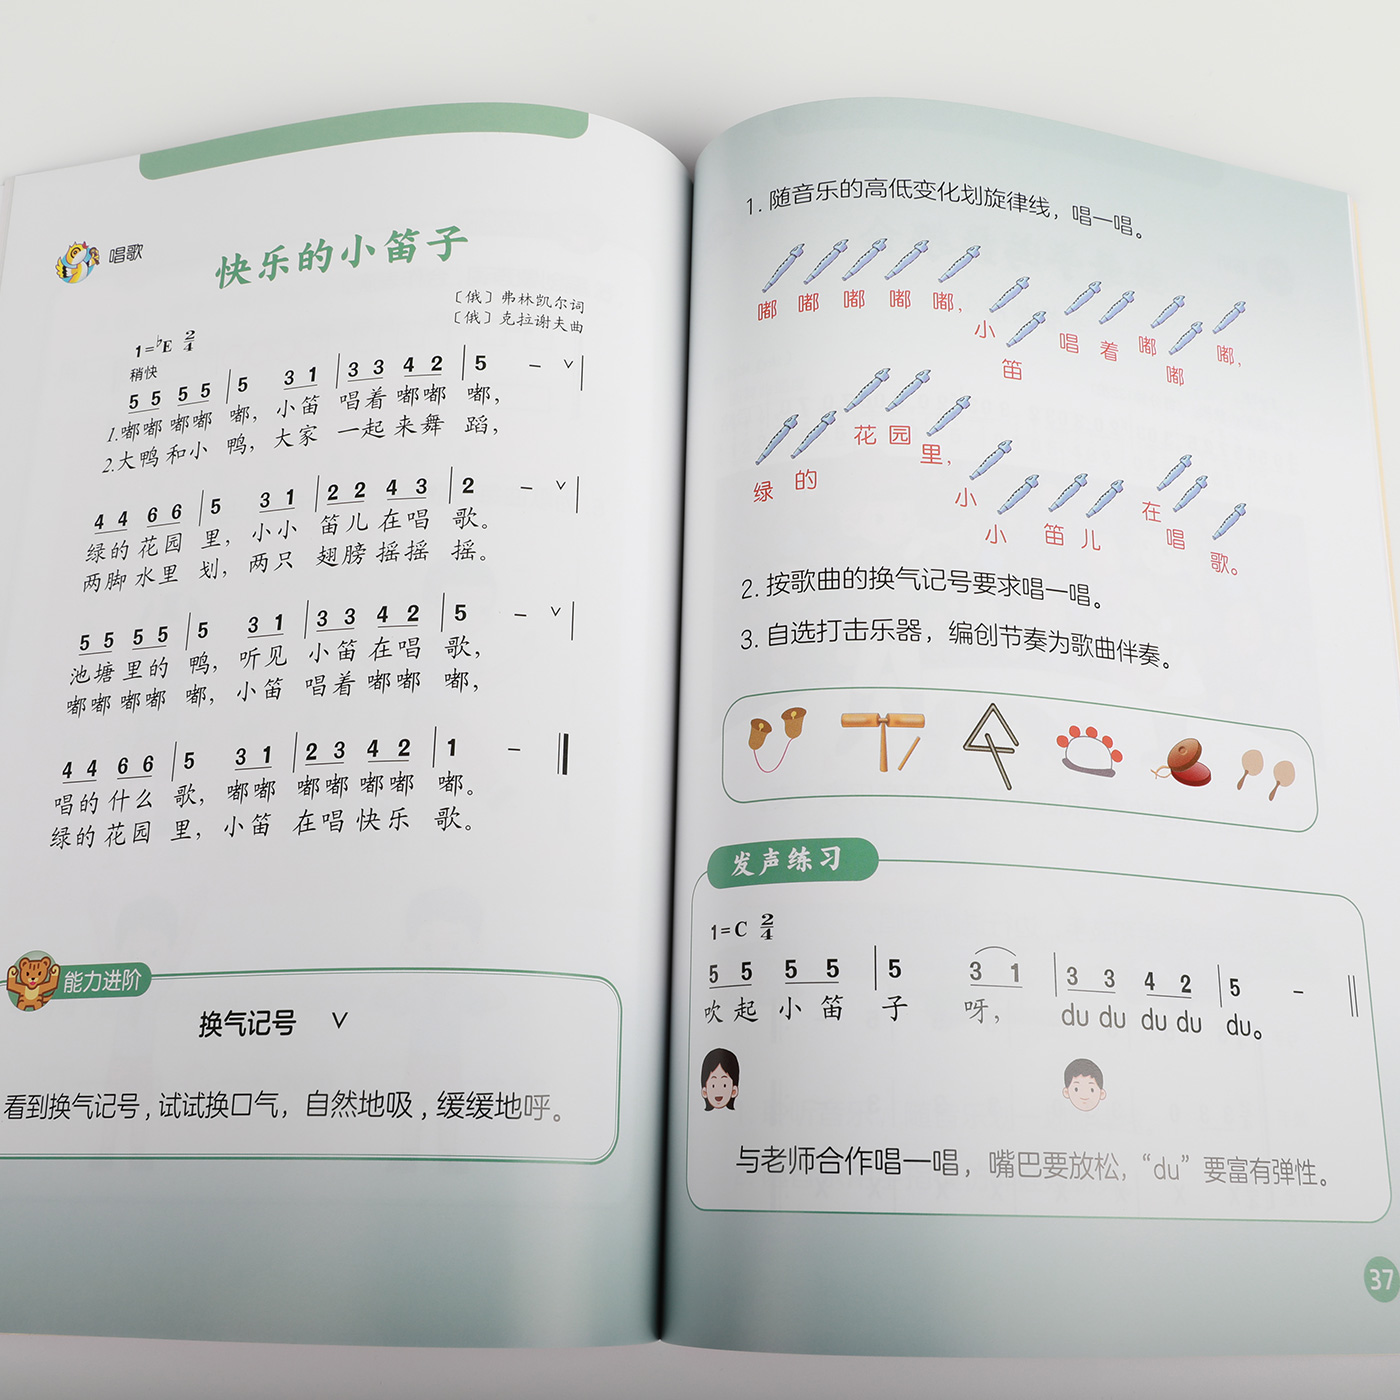 唱歌
快乐的小笛子
〔俄〕弗林凯尔词
〔俄〕克拉谢夫曲
1=♭E 2/4
稍快
5 5 5 5 | 5 3 1 | 3 3 4 2 | 5 - ∨ |
1.嘟嘟 嘟嘟 嘟，小笛 唱着 嘟嘟 嘟，
2.大鸭 和小 鸭，大家 一起 来舞 蹈，
4 4 6 6 | 5 3 1 | 2 2 4 3 | 2 - ∨ |
绿的 花园 里，小小 笛儿 在唱 歌。
两脚 水里 划，两只 翅膀 摇摇 摇。
5 5 5 5 | 5 3 1 | 3 3 4 2 | 5 - ∨ |
池塘 里的 鸭，听见 小笛 在唱 歌，
嘟嘟 嘟嘟 嘟，小笛 唱着 嘟嘟 嘟，
4 4 6 6 | 5 3 1 | 2 3 4 2 | 1 - ‖
唱的 什么 歌，嘟嘟 嘟嘟 嘟嘟 嘟。
绿的 花园 里，小笛 在唱 快乐 歌。
能力进阶
换气记号 ∨
看到换气记号，试试换口气，自然地吸，缓缓地呼。
1. 随音乐的高低变化划旋律线，唱一唱。
嘟 嘟 嘟 嘟 嘟，小 笛 唱 着 嘟 嘟 嘟，
绿 的 花 园 里，小 小 笛 儿 在 唱 歌。
2. 按歌曲的换气记号要求唱一唱。
3. 自选打击乐器，编创节奏为歌曲伴奏。
发声练习
1=C 2/4
5 5 5 5 | 5 3 1 | 3 3 4 2 | 5 - ‖
吹 起 小 笛 子 呀，du du du du du。
与老师合作唱一唱，嘴巴要放松，“du”要富有弹性。
37